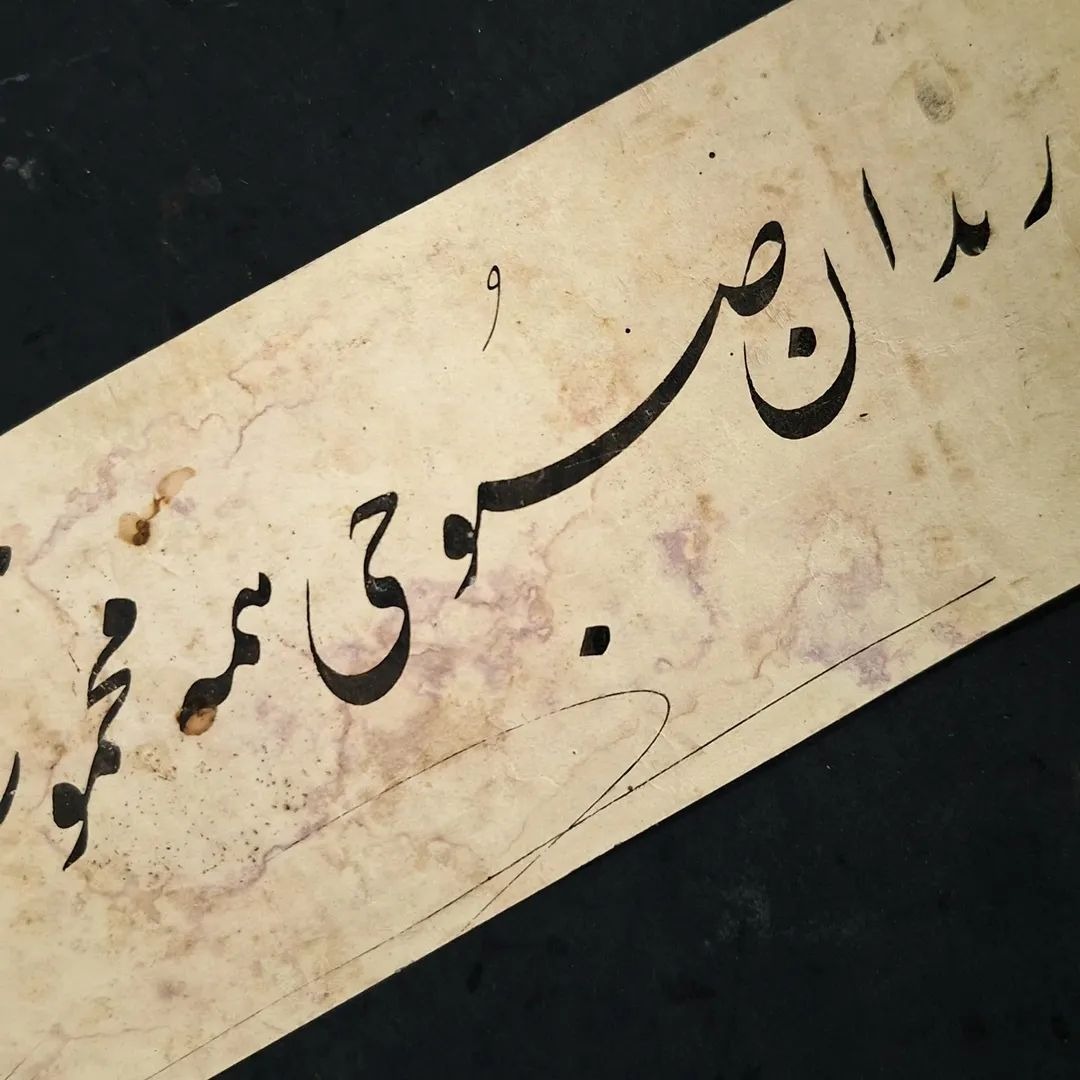 رندان صُبوحی همه مخمور